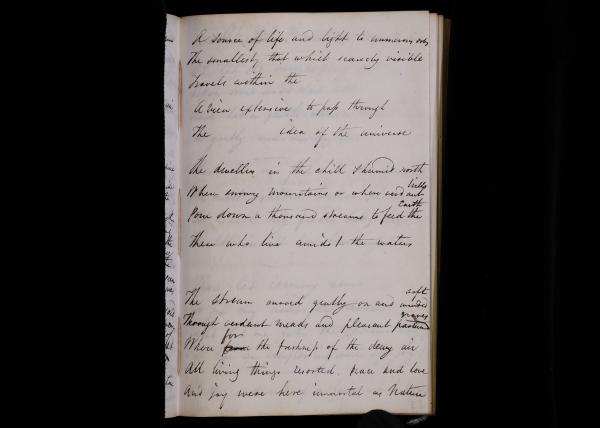 A source of life and light to numerous orbs
The smallest, that which scarcely visible
Travels within the
A view extensive to pass through
The idea of the universe
The dweller in the chill & humid north
Where snowy mountains or where verdant hills
Pour down a thousand streams to feed the earth
These who live amidst the waters
The stream moved gently on and winded soft
Through verdant meads and pleasant pastures groves
Where from for the freshness of the dewy air
All living things resorted. Peace and love
And joy were here immortal as Nature